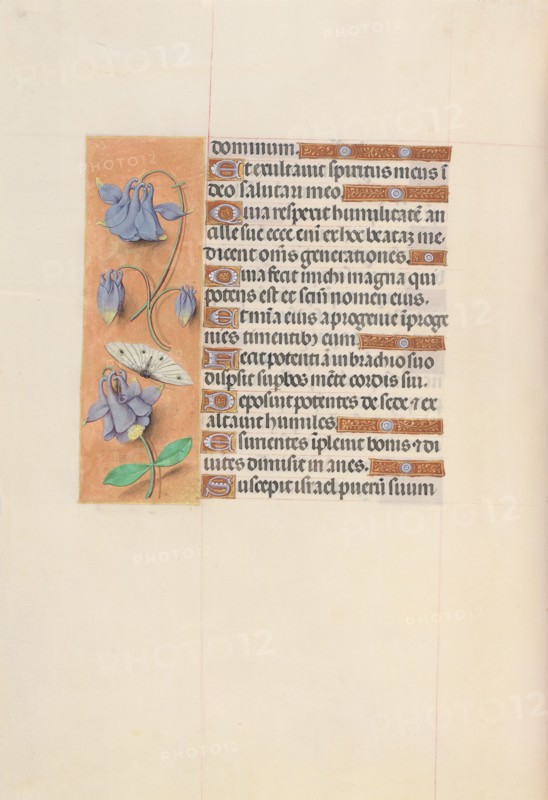 dominum.
Et exultauit spiritus meus ī
deo salutari meo
Quia respexit humilitatē an
cille sue ecce eniʒ ex hoc beataʒ me
dicent oēs generationes.
Quia fecit michi magna qui
potens est et sctm̄ nomen eius.
Et mīa eius a progenie ī proge
nies timentibʒ eum.
Fecit potentiā in brachio suo
dispsit supbos mēte cordis sui.
Deposuit potentes de sede ⁊ ex
altauit humiles
Esurientes īpleuit bonis ⁊ di
uites dimisit inanes.
Suscepit israel puerū suum
PHOTO12
PHOTO12
PHOTO12
PHOTO12
PHOTO12
PHOTO12